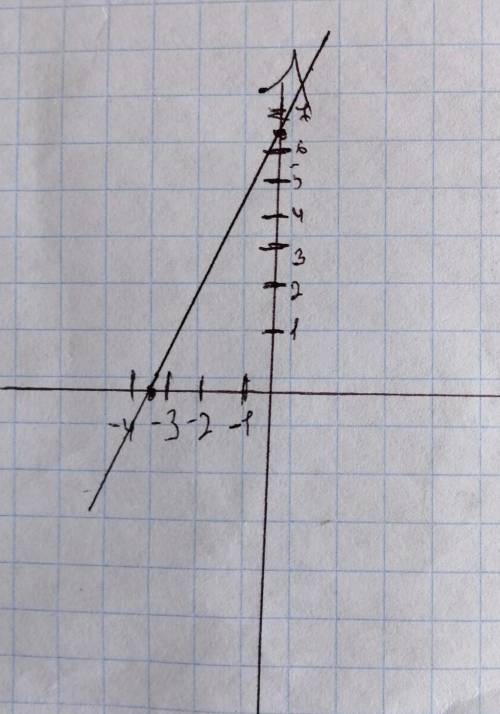 7
6
5
4
3
2
1
-4 -3 -2 -1